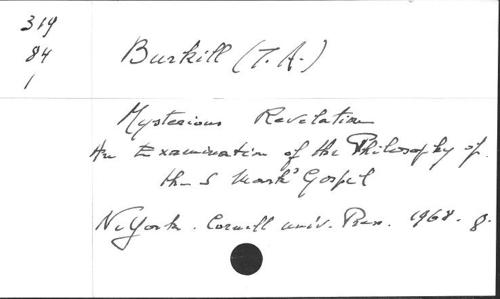 319
84
1
Burkill (T. A.)
Mysterious Revelation
An Examination of the Philosophy of
the S Mark' Gospel
N. York. Cornell univ. Press. 1968. 8.